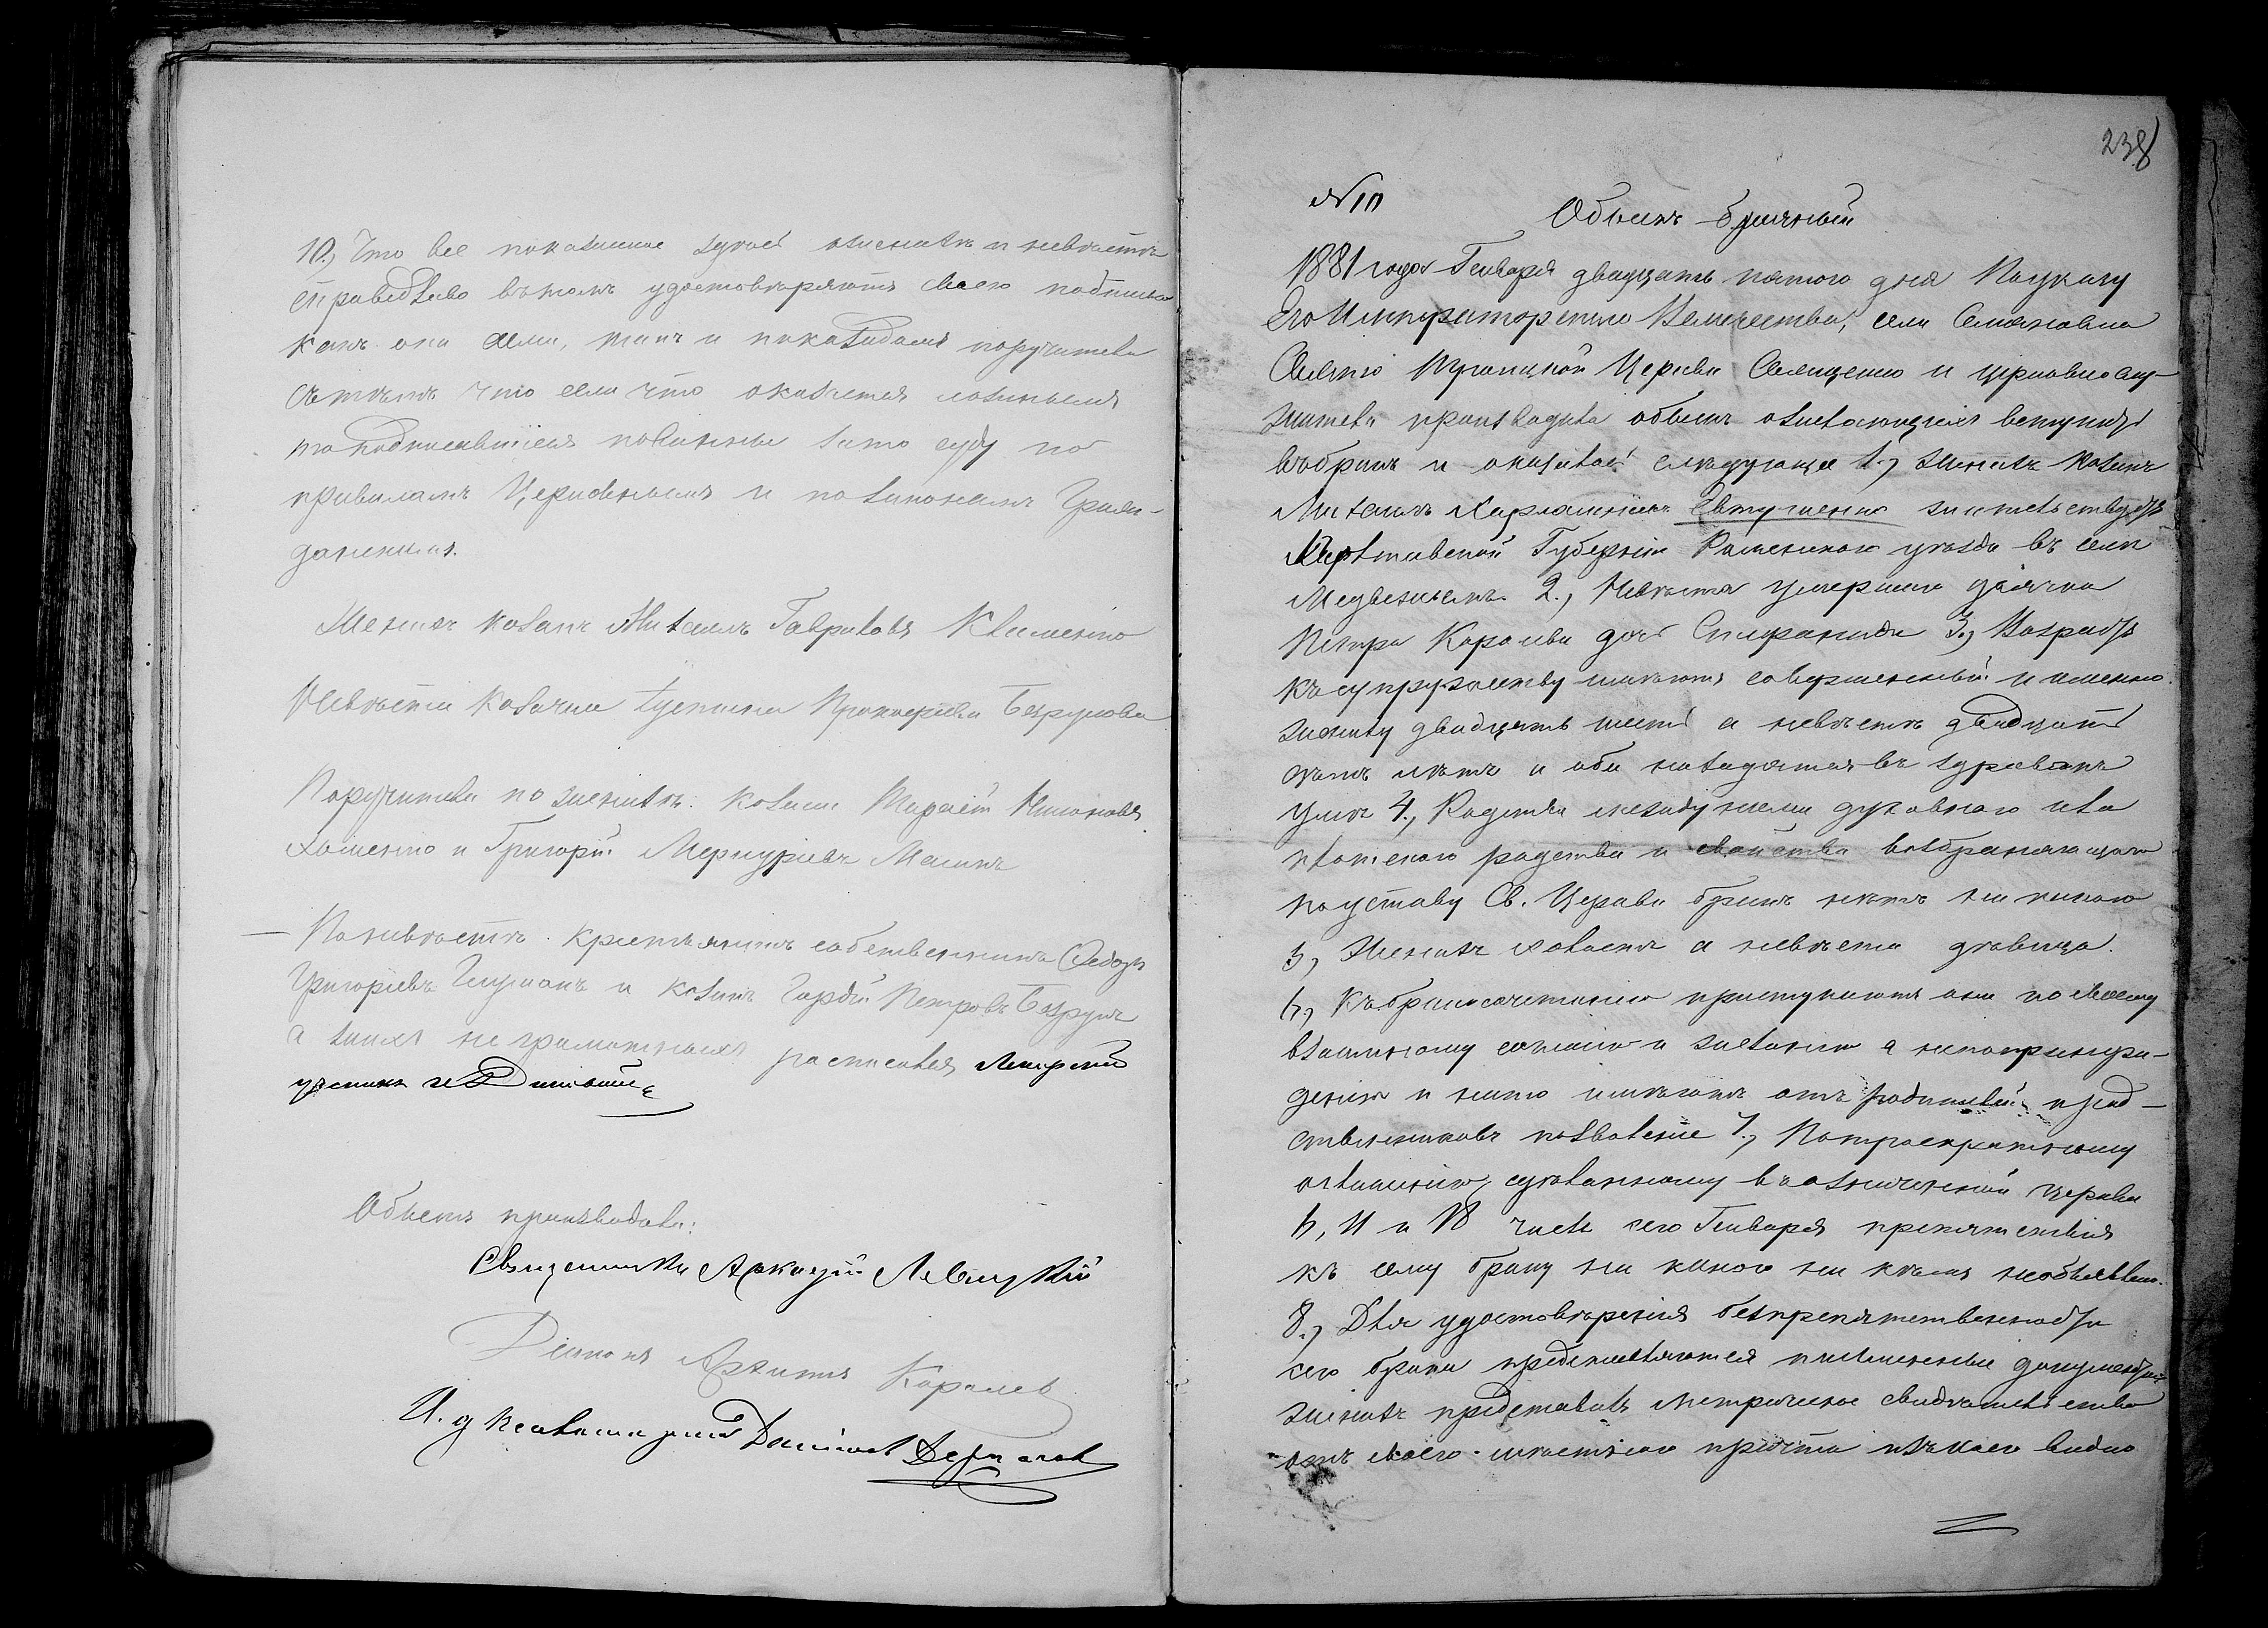 10.) Что все показанное здесь женихъ и невѣста
справедливо въ томъ удостовѣряютъ своею подписью
какъ они сами, такъ и поручители
съ тѣмъ что если что окажется ложнымъ
то подписавшіеся повинны за то суду по
правиламъ Церковнымъ и по законамъ Граж-
данскимъ.
Женихъ козакъ Михаилъ Гавриловъ Клименко
Невѣста козачка Прокофіева Безрукова
Поручители по женихѣ: козаки Никоновъ
Хоменко и Григорій Меркуріевъ
— По невѣстѣ: крестьянинъ собственникъ Федоръ
Григорьевъ и козакъ Гордій Петровъ Безрукъ
а за нихъ неграмотныхъ расписался
Обыскъ производили:
Священникъ Аркадій Левицкій
Діаконъ Королев
И. д. псаломщика Даніилъ
238
№ 10
Обыскъ брачный
1881 года Генваря двадцать пятого дня По указу
Его Императорскаго Величества, села Смѣлаго
Свято Троицкой Церкви Священно и церковнослу-
жители производили обыскъ о желающихъ вступить
въ бракъ и оказалось слѣдующее 1.) женихъ козакъ
Михаилъ Харлампіевъ Евтушенко жительствуетъ
Полтавской Губерніи Роменскаго уѣзда въ селѣ
Медвежьемъ. 2.) Невѣста умершаго дьячка
Петра Королева дочь Степанида 3.) Возрастъ
къ супружеству имѣютъ совершенный и именно
жениху двадцать шесть а невѣстѣ двадцать
лѣтъ и оба находятся въ здравомъ
умѣ 4.) Родства между ними духовнаго или
плотскаго родства и свойства возбраняющаго
по уставу Св. Церкви бракъ нѣтъ никакого
5.) Женихъ холостъ а невѣста дѣвица.
6.) Къ бракосочетанію приступаютъ они по своему
взаимному согласію и желанію а не по принуж-
денію и на то имѣютъ отъ родителей и род-
ственниковъ позволеніе 7.) По троекратному
оглашенію, сдѣланному въ означенной церкви
6, 11 и 18 числъ сего Генваря препятствія
къ сему браку никакого никѣмъ необъявлено.
8.) Для удостовѣренія безпрепятственности
сего брака представляются письменные документы:
женихъ представилъ метрическое свидѣтельство
отъ своего мѣстнаго причта изъ коего видно